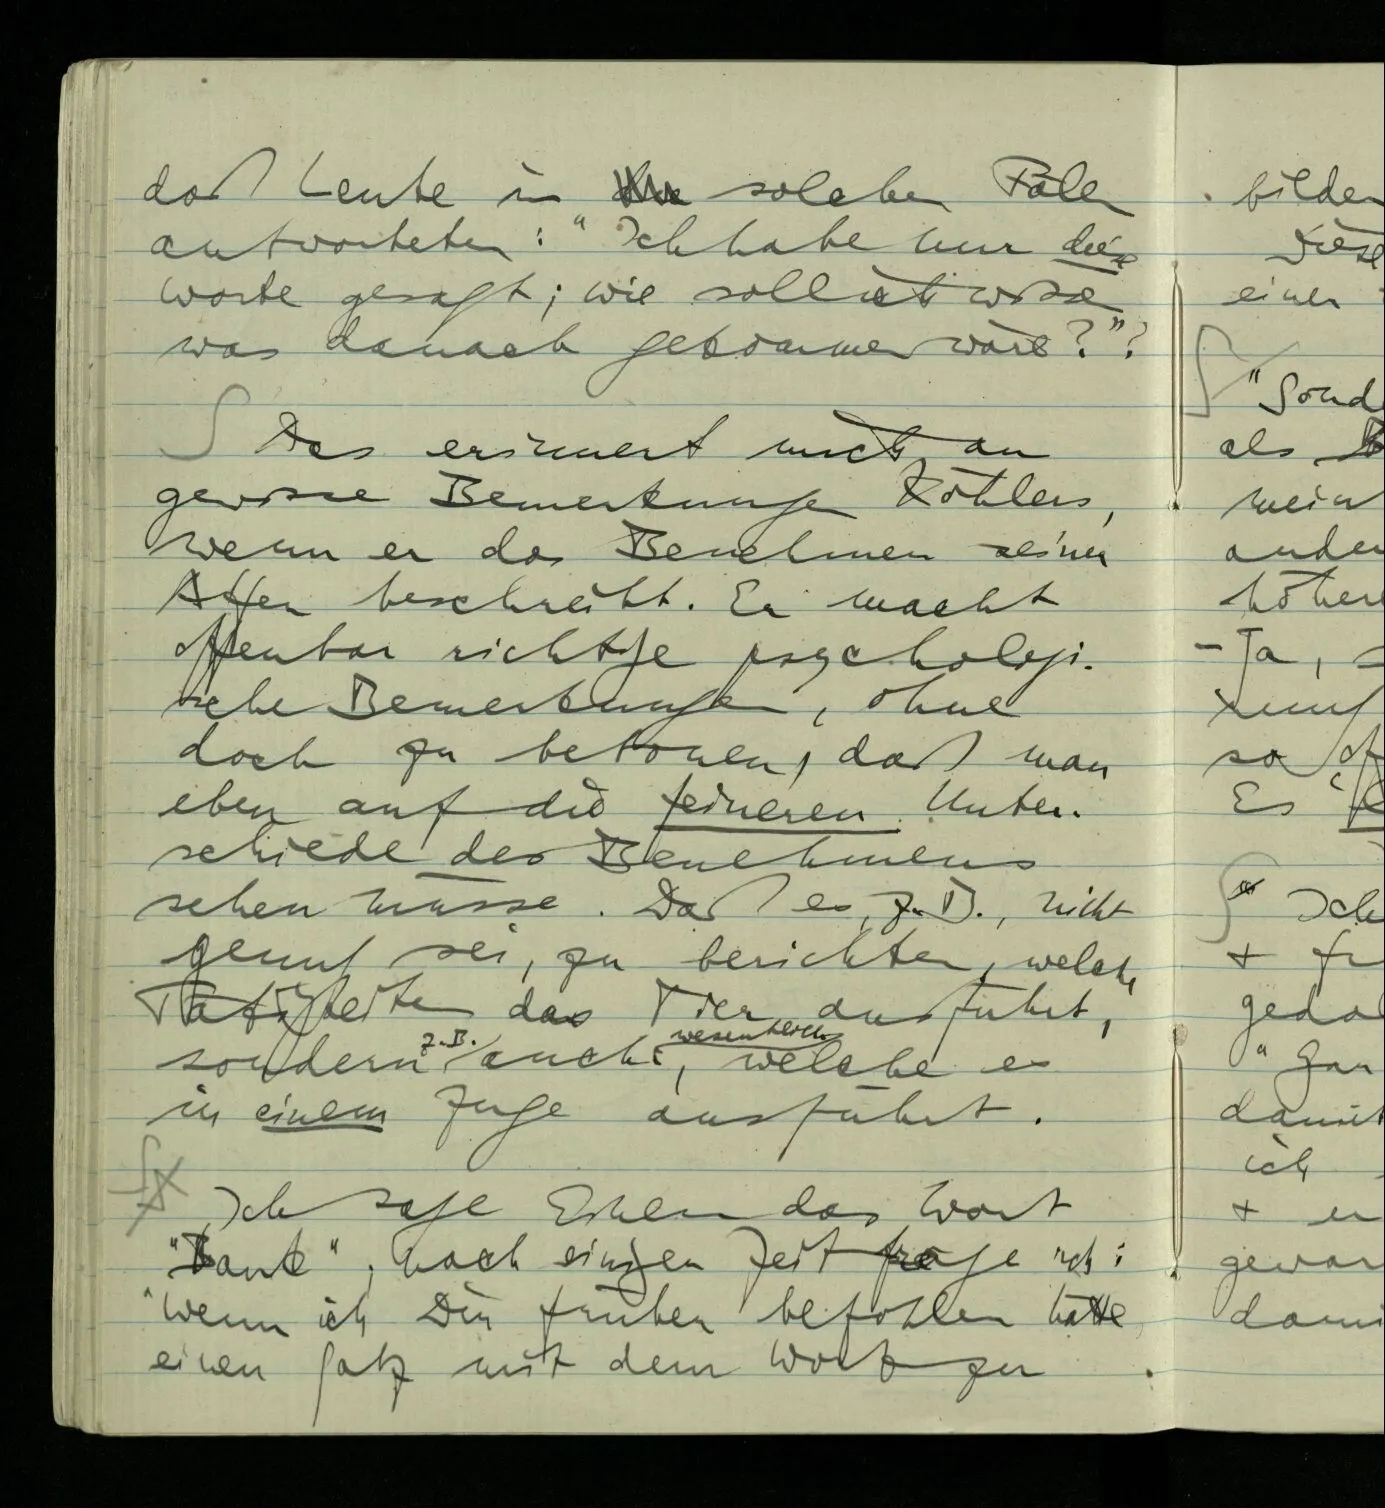 daß Leute in solchen Fälen
antworteten: "Ich habe nur diese
Worte gesagt; wie soll ich wissen
was danach gekommen wäre?"?
Das erinnert mich an
gewisse Bemerkungen Köhlers,
wenn er das Benehmen seiner
Affen beschreibt. Er macht
offenbar richtige psychologi-
sche Bemerkungen, ohne
doch zu betonen, daß man
eben auf die feineren Unter-
schiede des Benehmens
sehen müsse. Daß es, z.B., nicht
genug sei, zu berichten, welche
Tätigkeiten das Tier ausführt,
z.B. wesentlich
sondern auch, welche es
in einem Zuge ausführt.
Ich sage Einem das Wort
"Bank", nach einigen Zeit frage ich:
"Wenn ich Dir früher befohlen hätte
einen Satz mit dem Wort zu
bilden
Diese
einer
"Sond
als
mein
ander
höhere
- Ja,
so
Es
Ich
+
damit
ich
+ er